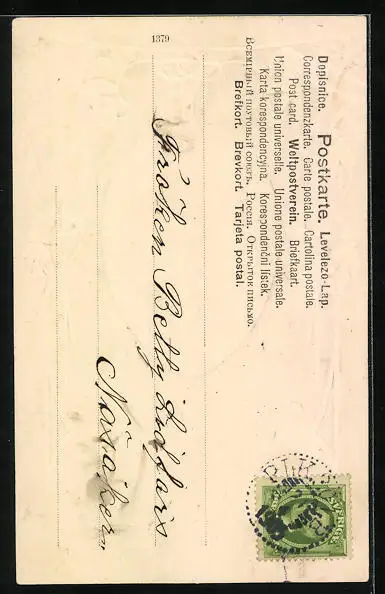 Dopisnice. Postkarte. Levelező-Lap.
Correspondenzkarte. Carte postale. Cartolina postale.
Post card. Weltpostverein. Briefkaart.
Union postale universelle. Unione postale universale.
Karta korespondencyjna. Korespondenční lístek.
Всемірный почтовый союзъ. Россія. Открытое письмо.
Brefkort. Brevkort. Tarjeta postal.
1379
Fröken Betty Lidfars
Näsåker
SVERIGE